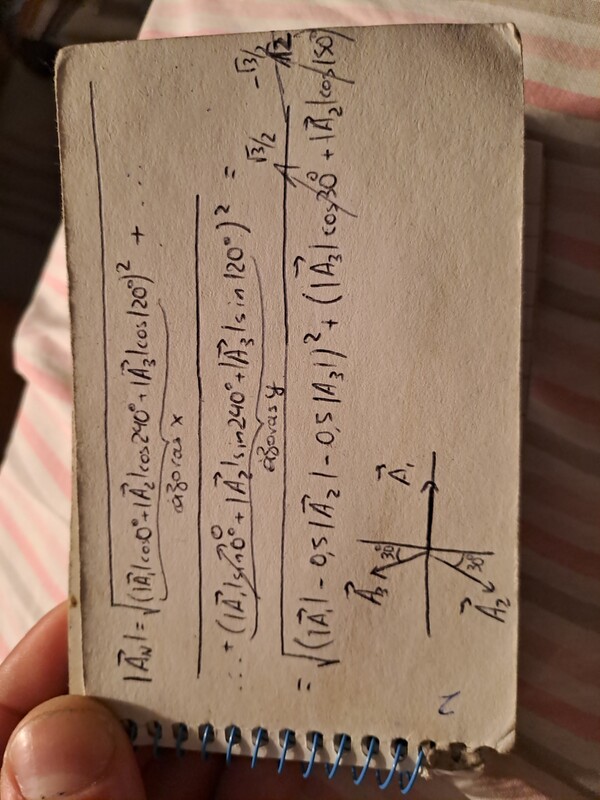 |A⃗_N| = √(|A⃗₁|cos0°+|A⃗₂|cos240°+|A⃗₃|cos120°)² + ...
άξονας x
...+(|A⃗₁|sin0°+|A⃗₂|sin240°+|A⃗₃|sin120°)² =
0
άξονας y
√3/2 -√3/2
= √(|A⃗₁|-0,5|A⃗₂|-0,5|A⃗₃|)²+(|A⃗₃|cos30°+|A⃗₂|cos150°
A⃗₃ 30°
A⃗₁
30°
A⃗₂
2